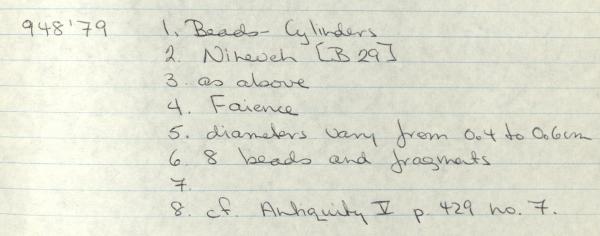 948'79 1. Beads - Cylinders
2. Nineveh [B 29]
3. as above
4. Faience
5. diameters vary from 0.4 to 0.6cm
6. 8 beads and fragments
7.
8. cf. Antiquity V p. 429 no. 7.